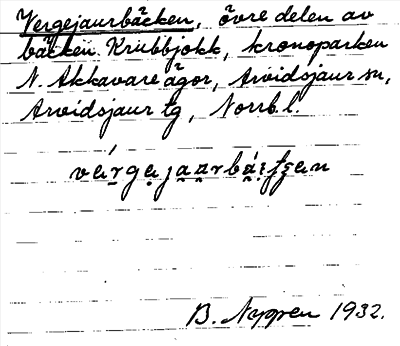 Vergejaurbäcken, övre delen av
bäcken. Krubbjokk, kronoparken
N. Akkavare ägor, Arvidsjaur sn,
Arvidsjaur tg, Norrb. l.
1932.